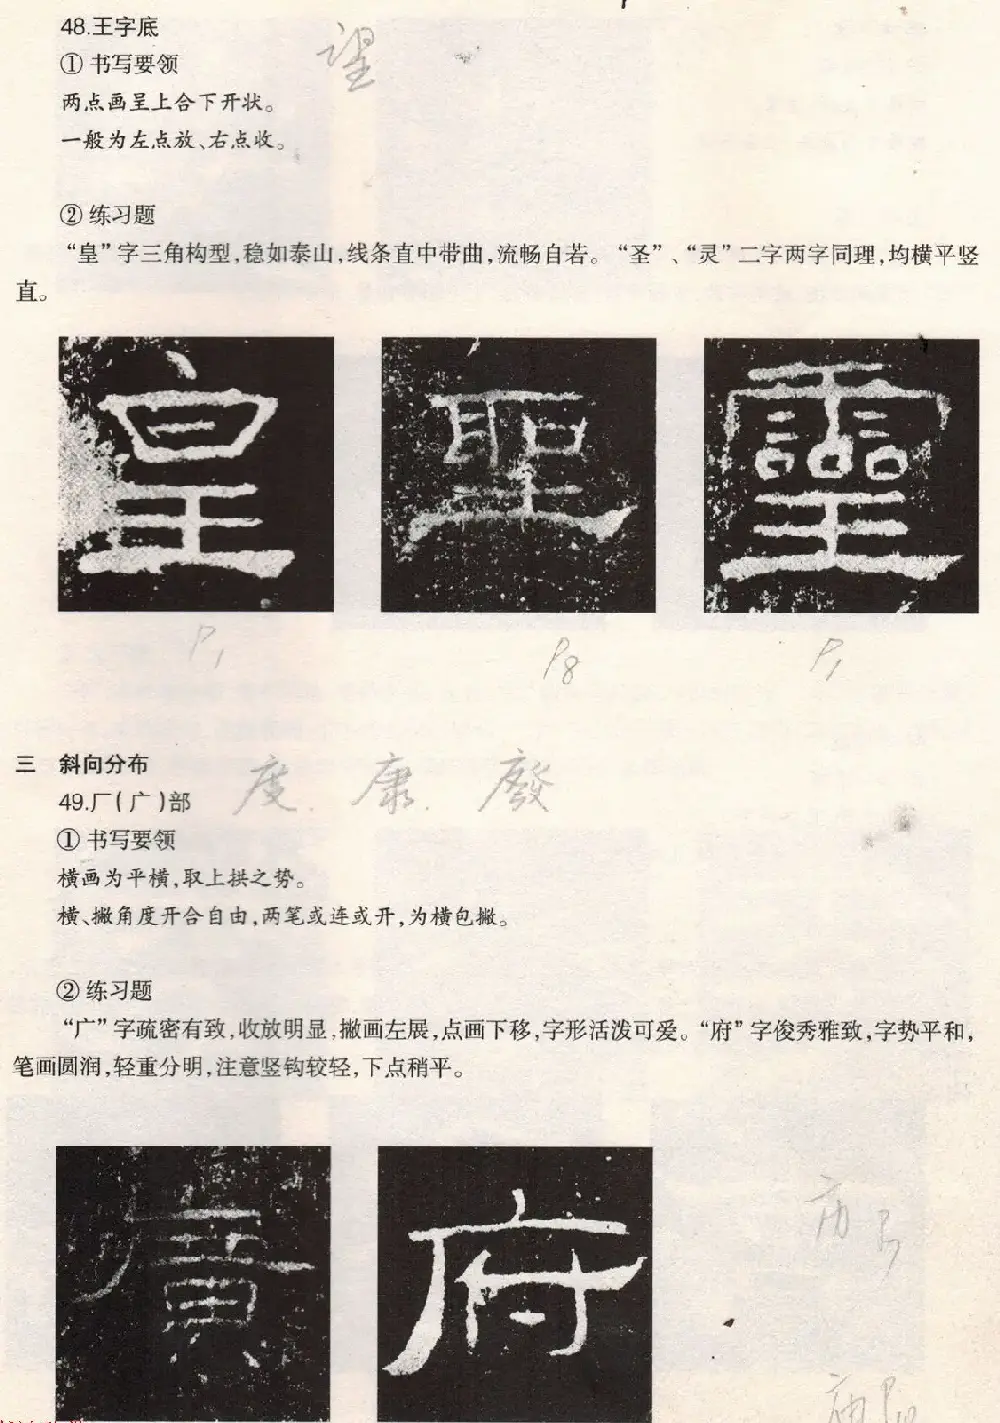 48.王字底
望
① 书写要领
两点画呈上合下开状。
一般为左点放、右点收。
② 练习题
“皇”字三角构型,稳如泰山,线条直中带曲,流畅自若。“圣”、“灵”二字两字同理,均横平竖
直。
皇 聖 靈
P1 P8 P1
三 斜向分布
度. 康. 廢
49.厂(广)部
① 书写要领
横画为平横,取上拱之势。
横、撇角度开合自由,两笔或连或开,为横包撇。
② 练习题
“广”字疏密有致,收放明显,撇画左展,点画下移,字形活泼可爱。“府”字俊秀雅致,字势平和,
笔画圆润,轻重分明,注意竖钩较轻,下点稍平。
廣 府